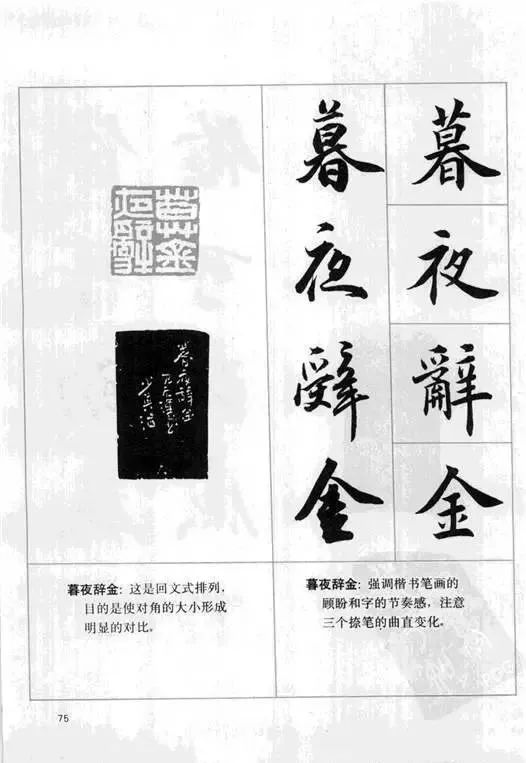 暮
夜
辭
金
暮
夜
辤
金
暮夜辞金：这是回文式排列，
目的是使对角的大小形成
明显的对比。
暮夜辞金：强调楷书笔画的
顾盼和字的节奏感，注意
三个捺笔的曲直变化。
75